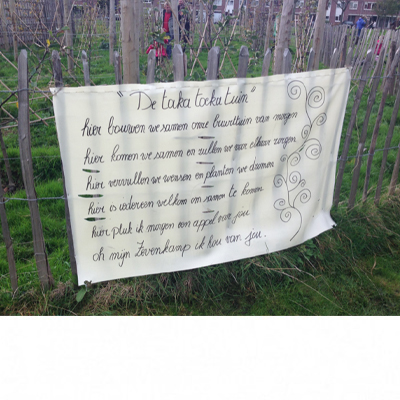 "De taka toeka tuin"
hier bouwen we samen onze buurttuin van morgen
hier komen we samen en zullen we voor elkaar zorgen
hier vervullen we wensen en planten we dromen
hier is iedereen welkom om samen te komen
hier pluk ik morgen een appel voor jou
oh mijn Zevenkamp ik hou van jou.